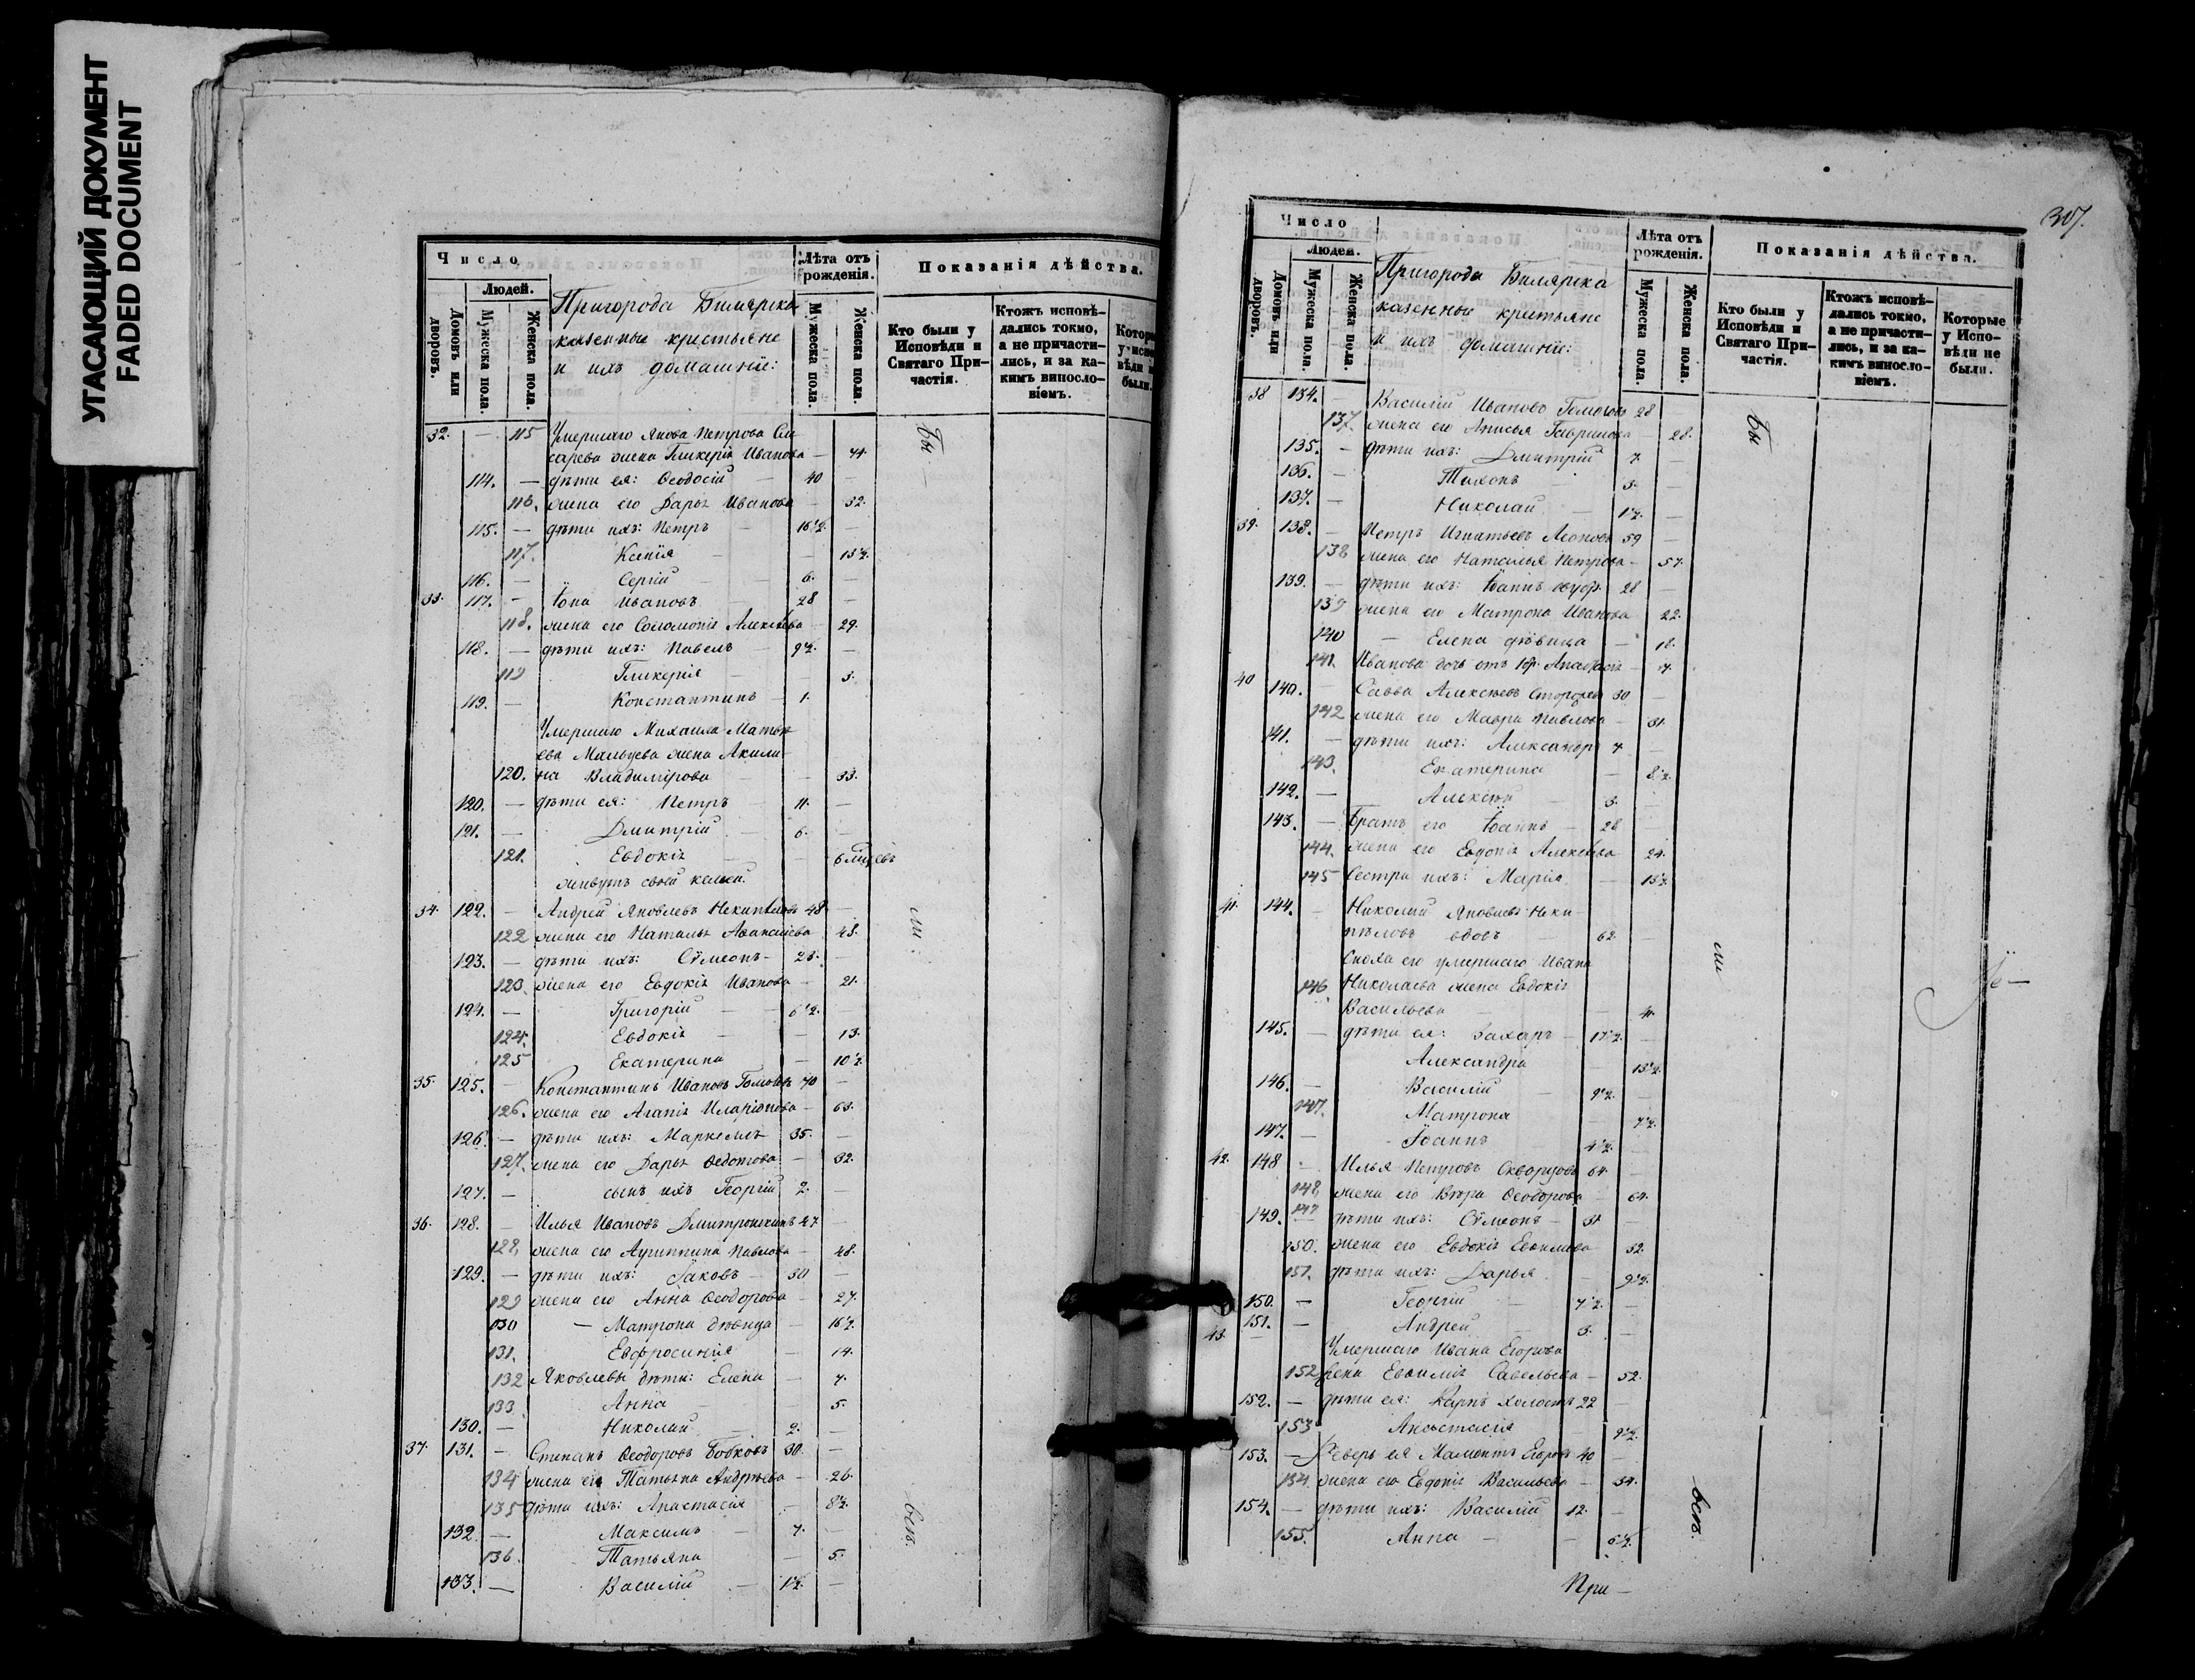 УГАСАЮЩИЙ ДОКУМЕНТ
FADED DOCUMENT
Число
Людей.
Домовъ или дворовъ.
Мужеска пола.
Женска пола.
Пригорода Билярска
казенные крестьяне
и ихъ домашніе:
Лѣта отъ рожденія.
Мужеска пола.
Женска пола.
Показанія дѣйства.
Кто были у Исповѣди и Святаго При-частія.
Ктожъ исповѣ-дались токмо, а не причасти-лись, и за ка-кимъ винosло-віемъ.
32. — 115 Умершаго Якова Петрова
жена Гликерія Иванова —
114. — дѣти ея: Ѳеодосій — 40 —
116. жена его Дарья Иванова — 32.
115. — дѣти ихъ: Петръ — 16½. —
117. Ксенія — — 13½.
116. — Сергій — 6. —
33. 117. — Іона Ивановъ 28 —
118. жена его Соломонія Алексѣева 29.
118. — дѣти ихъ: Павелъ — 9½. —
119 Гликерія — — 3.
119. — Константинъ — 1.
Умершаго Михаила Матѳ-
ева Мальцева жена Акили-
120. на Владимірова — — 33.
120. — дѣти ея: Петръ — 11. —
121. — Дмитрій — 6. —
121. Евдокія — — 6 мѣсяцевъ
живутъ своей кельей.
34. 122. — Андрей Яковлевъ Некипѣловъ 48 —
122 жена его Наталья Аѳанасьева 48.
123. — дѣти ихъ: Сѵмеонъ — 23. —
123. жена его Евдокія Иванова — 21.
124. — Григорій — — 6½.
124. Евдокія — — 13.
125 Екатерина — 10½.
35. 125. — Константинъ Ивановъ 70 —
126. жена его Агапія Иларіонова — 63.
126. — дѣти ихъ: Маркеллъ 35. —
127. жена его Дарья Ѳедотова — 32.
127. — сынъ ихъ Георгій 2. —
36. 128. — Илья Ивановъ Дмитрошкинъ 47 —
128. жена его Агриппина Павлова — 48.
129. — дѣти ихъ: Іаковъ — 30 —
129 жена его Анна Ѳеодорова — 27.
130 — Матрона дѣвица — 16½.
131. Евфросинія — 14.
132 Яковлевы дѣти: Елена — 7.
133. Анна — 5.
130. — Николай — 2. —
37. 131. — Степанъ Ѳеодоровъ Бобковъ 30. —
134 жена его Татьяна Андреева — 26.
135 дѣти ихъ: Анастасія — 8½.
132. — Максимъ — 7. —
136. Татьяна — 5.
133. — Василій — 1½. —
бы
ли
всѣ.
307.
Число
Людей.
Домовъ или дворовъ.
Мужеска пола.
Женска пола.
Пригорода Билярска
казенные крестьяне
и ихъ домашніе:
Лѣта отъ рожденія.
Мужеска пола.
Женска пола.
Показанія дѣйства.
Кто были у Исповѣди и Святаго При-частія.
Ктожъ исповѣ-дались токмо, а не причасти-лись, и за ка-кимъ винosло-віемъ.
Которые у Испо-вѣди не были.
38 134. — Василій Ивановъ 28 —
137. жена его Анисья Гаврилова — 28.
135. — дѣти ихъ: Дмитрій 7. —
136. — Тихонъ — 3. —
137. — Николай — 1½. —
39. 138. — Петръ Игнатьевъ 59 —
138 жена его Наталья Петрова — 57.
139. — дѣти ихъ: Іоаннъ 28 —
139 жена его Матрона Иванова 22.
140 — Елена дѣвица — 18.
141. Иванова дочь отъ 1 бр. — 7.
40 140. — Савва Алексѣевъ 30 —
142 жена его Мавра Павлова — 31.
141. — дѣти ихъ: Александръ 7. —
143. Екатерина — 8½.
142. — Алексѣй — 3. —
143. — Братъ его Іоаннъ — 28 —
144. жена его Евдокія Алексѣева 24.
145 Сестра ихъ: Марія — 15½.
41. 144. — Николай Яковлевъ Неки-
пѣловъ вдовъ — 62. —
Сноха его умершаго Ивана
146. Николаева жена Евдокія
Васильева — 41.
145. — дѣти ея: Захаръ — 17½. —
Александра — 13½.
146. — Василій — 9½. —
147. Матрона — 7½.
147. — Іоаннъ — 4½. —
42. 148 — Илья Петровъ Скворцовъ 64. —
148. жена его Вѣра Ѳеодорова — 64.
149. 147 дѣти ихъ: Сѵмеонъ — 31. —
150. жена его Евдокія Евѳимьева 32.
151. дѣти ихъ: Дарья — 9½.
150. — Георгій — 7½. —
151. — Андрей — 3. —
43. — Умершаго Ивана Егорова
152 жена Евѳимія Савельева — 52.
152. — дѣти ея: Карпъ холостъ 22 —
153 Анастасія 9½.
153. — Деверь ея Мамонтъ Егоровъ 40 —
154. жена его Евдокія Васильева — 34.
154. — дѣти ихъ: Василій 12. —
155. Анна — — 6½.
бы
ли
всѣ.
При —